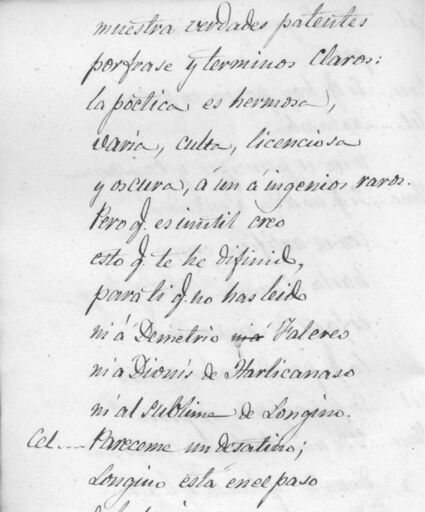 muestra verdades patentes
porfrase y terminos claros:
la pòetica es hermosa,
varia, culta, licenciosa
y oscura, á ún á ingenios raros.
Pero q. es inutil creo
esto q. te he difinido,
para ti q. no has leido
ni á Demetrio Falereo
ni a Dionís de Harlicanaso
ni al sublime de Longino.
Cel.... Pareceme un desatino;
Longino está en el paso